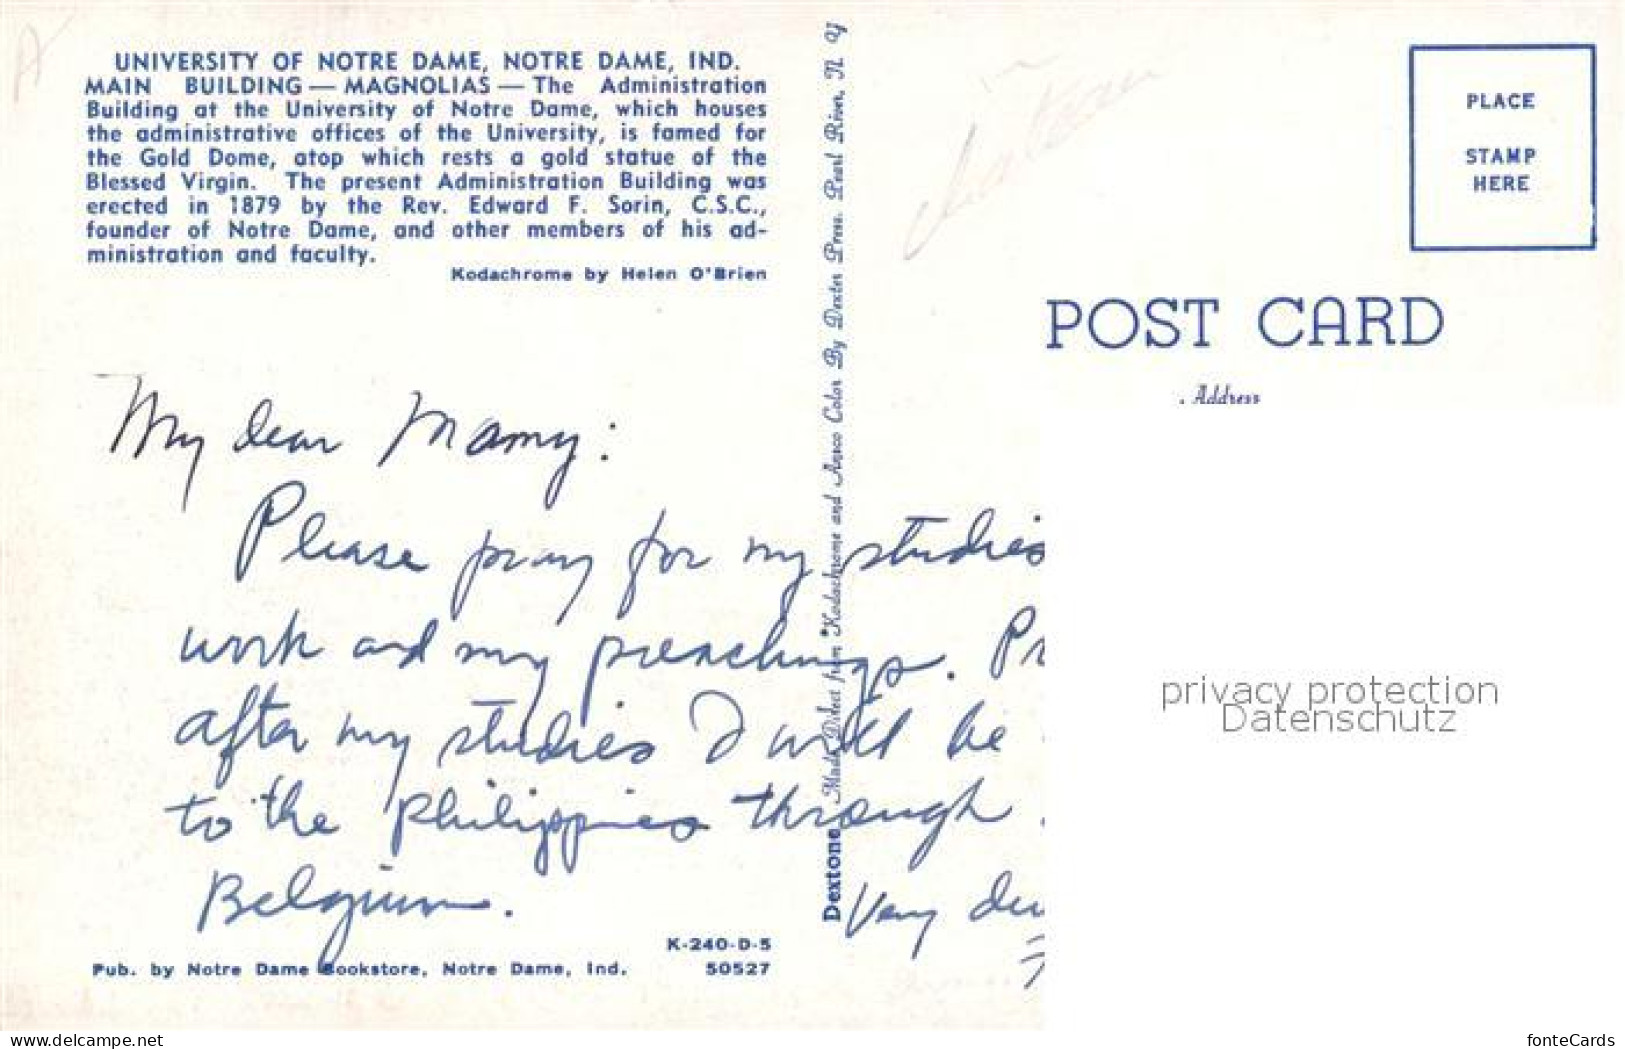 UNIVERSITY OF NOTRE DAME, NOTRE DAME, IND.
MAIN BUILDING — MAGNOLIAS — The Administration
Building at the University of Notre Dame, which houses
the administrative offices of the University, is famed for
the Gold Dome, atop which rests a gold statue of the
Blessed Virgin. The present Administration Building was
erected in 1879 by the Rev. Edward F. Sorin, C.S.C.,
founder of Notre Dame, and other members of his ad-
ministration and faculty.
Kodachrome by Helen O'Brien
My dear Mamy:
Please pray for my studies
work and my preachings. Pr
after my studies I will be
to the Philippines through
Belgium.
Very
K-240-D-5
50527
Pub. by Notre Dame Bookstore, Notre Dame, Ind.
Dextone Made Direct from Kodachrome and Ansco Color By Dexter Press. Pearl River, N Y
PLACE
STAMP
HERE
POST CARD
Address
privacy protection
Datenschutz
my.delcampe.net
fonteCards